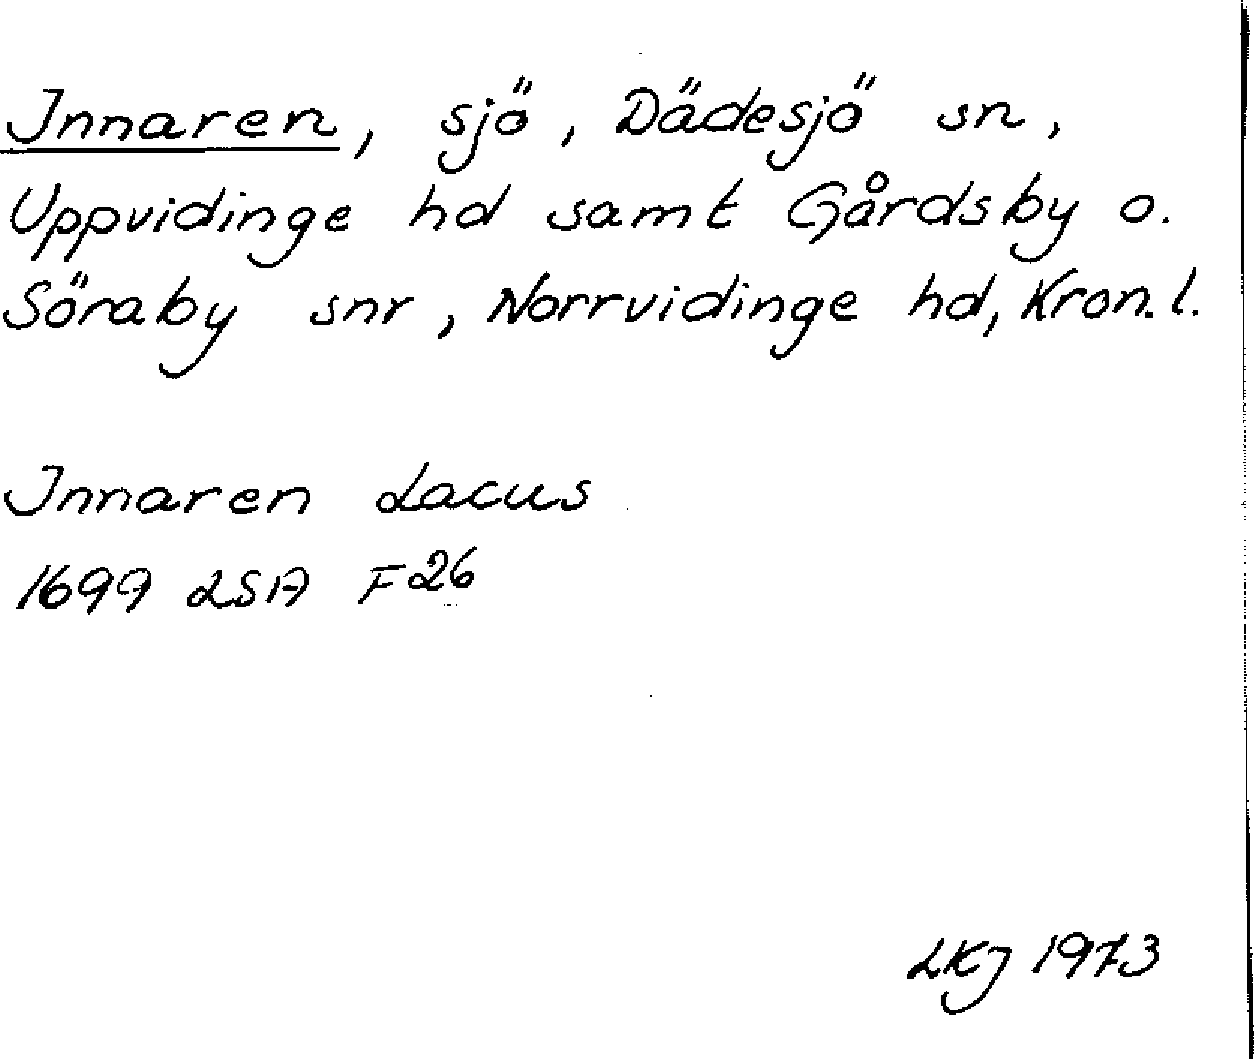 Innaren, sjö, Dädesjö sn,
Uppvidinge hd samt Gårdsby o.
Söraby snr, Norrvidinge hd, Kron. l.
Innaren Lacus
1699 LSA F26
LKJ 1973